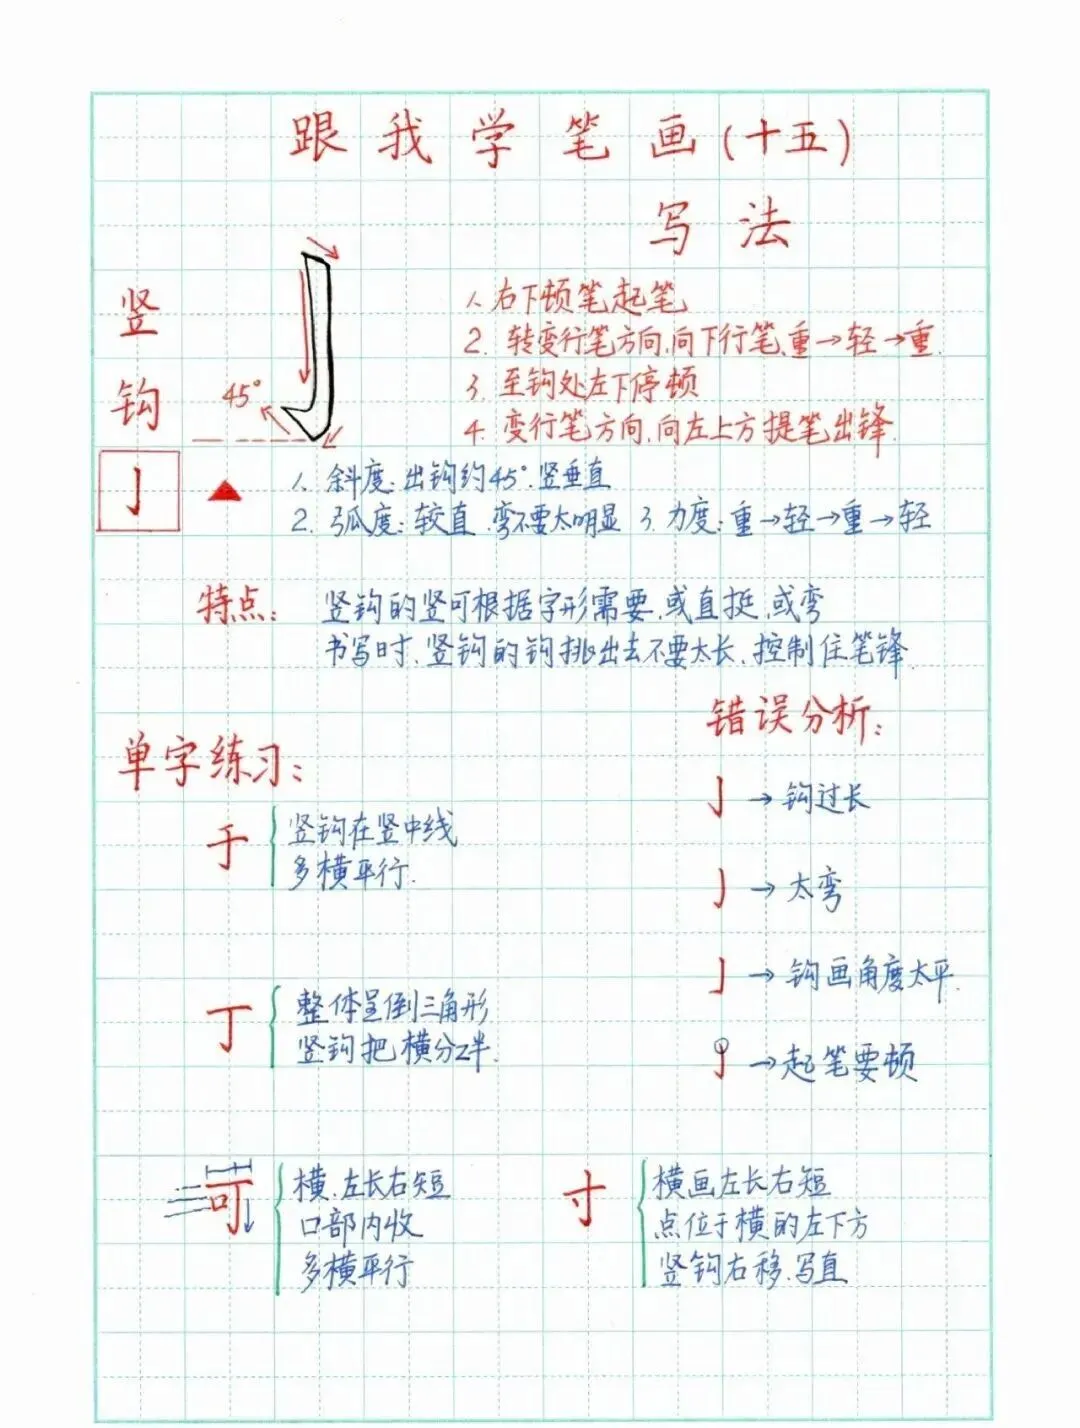 跟我学笔画(十五)
写法
竖钩
亅
45°
1、右下顿笔起笔
2、转变行笔方向,向下行笔,重→轻→重.
3、至钩处左下停顿
4、变行笔方向,向左上方提笔出锋.
1、斜度:出钩约45°.竖垂直
2、弧度:较直.弯不要太明显 3、力度:重→轻→重→轻
特点: 竖钩的竖可根据字形需要,或直挺,或弯
书写时,竖钩的钩挑出去不要太长,控制住笔锋.
错误分析:
亅→钩过长
亅→太弯
亅→钩画角度太平.
亅→起笔要顿
单字练习:
于
竖钩在竖中线
多横平行.
丁
整体呈倒三角形
竖钩把横分2半.
可
横.左长右短
口部内收
多横平行
寸
横画左长右短
点位于横的左下方
竖钩右移.写直